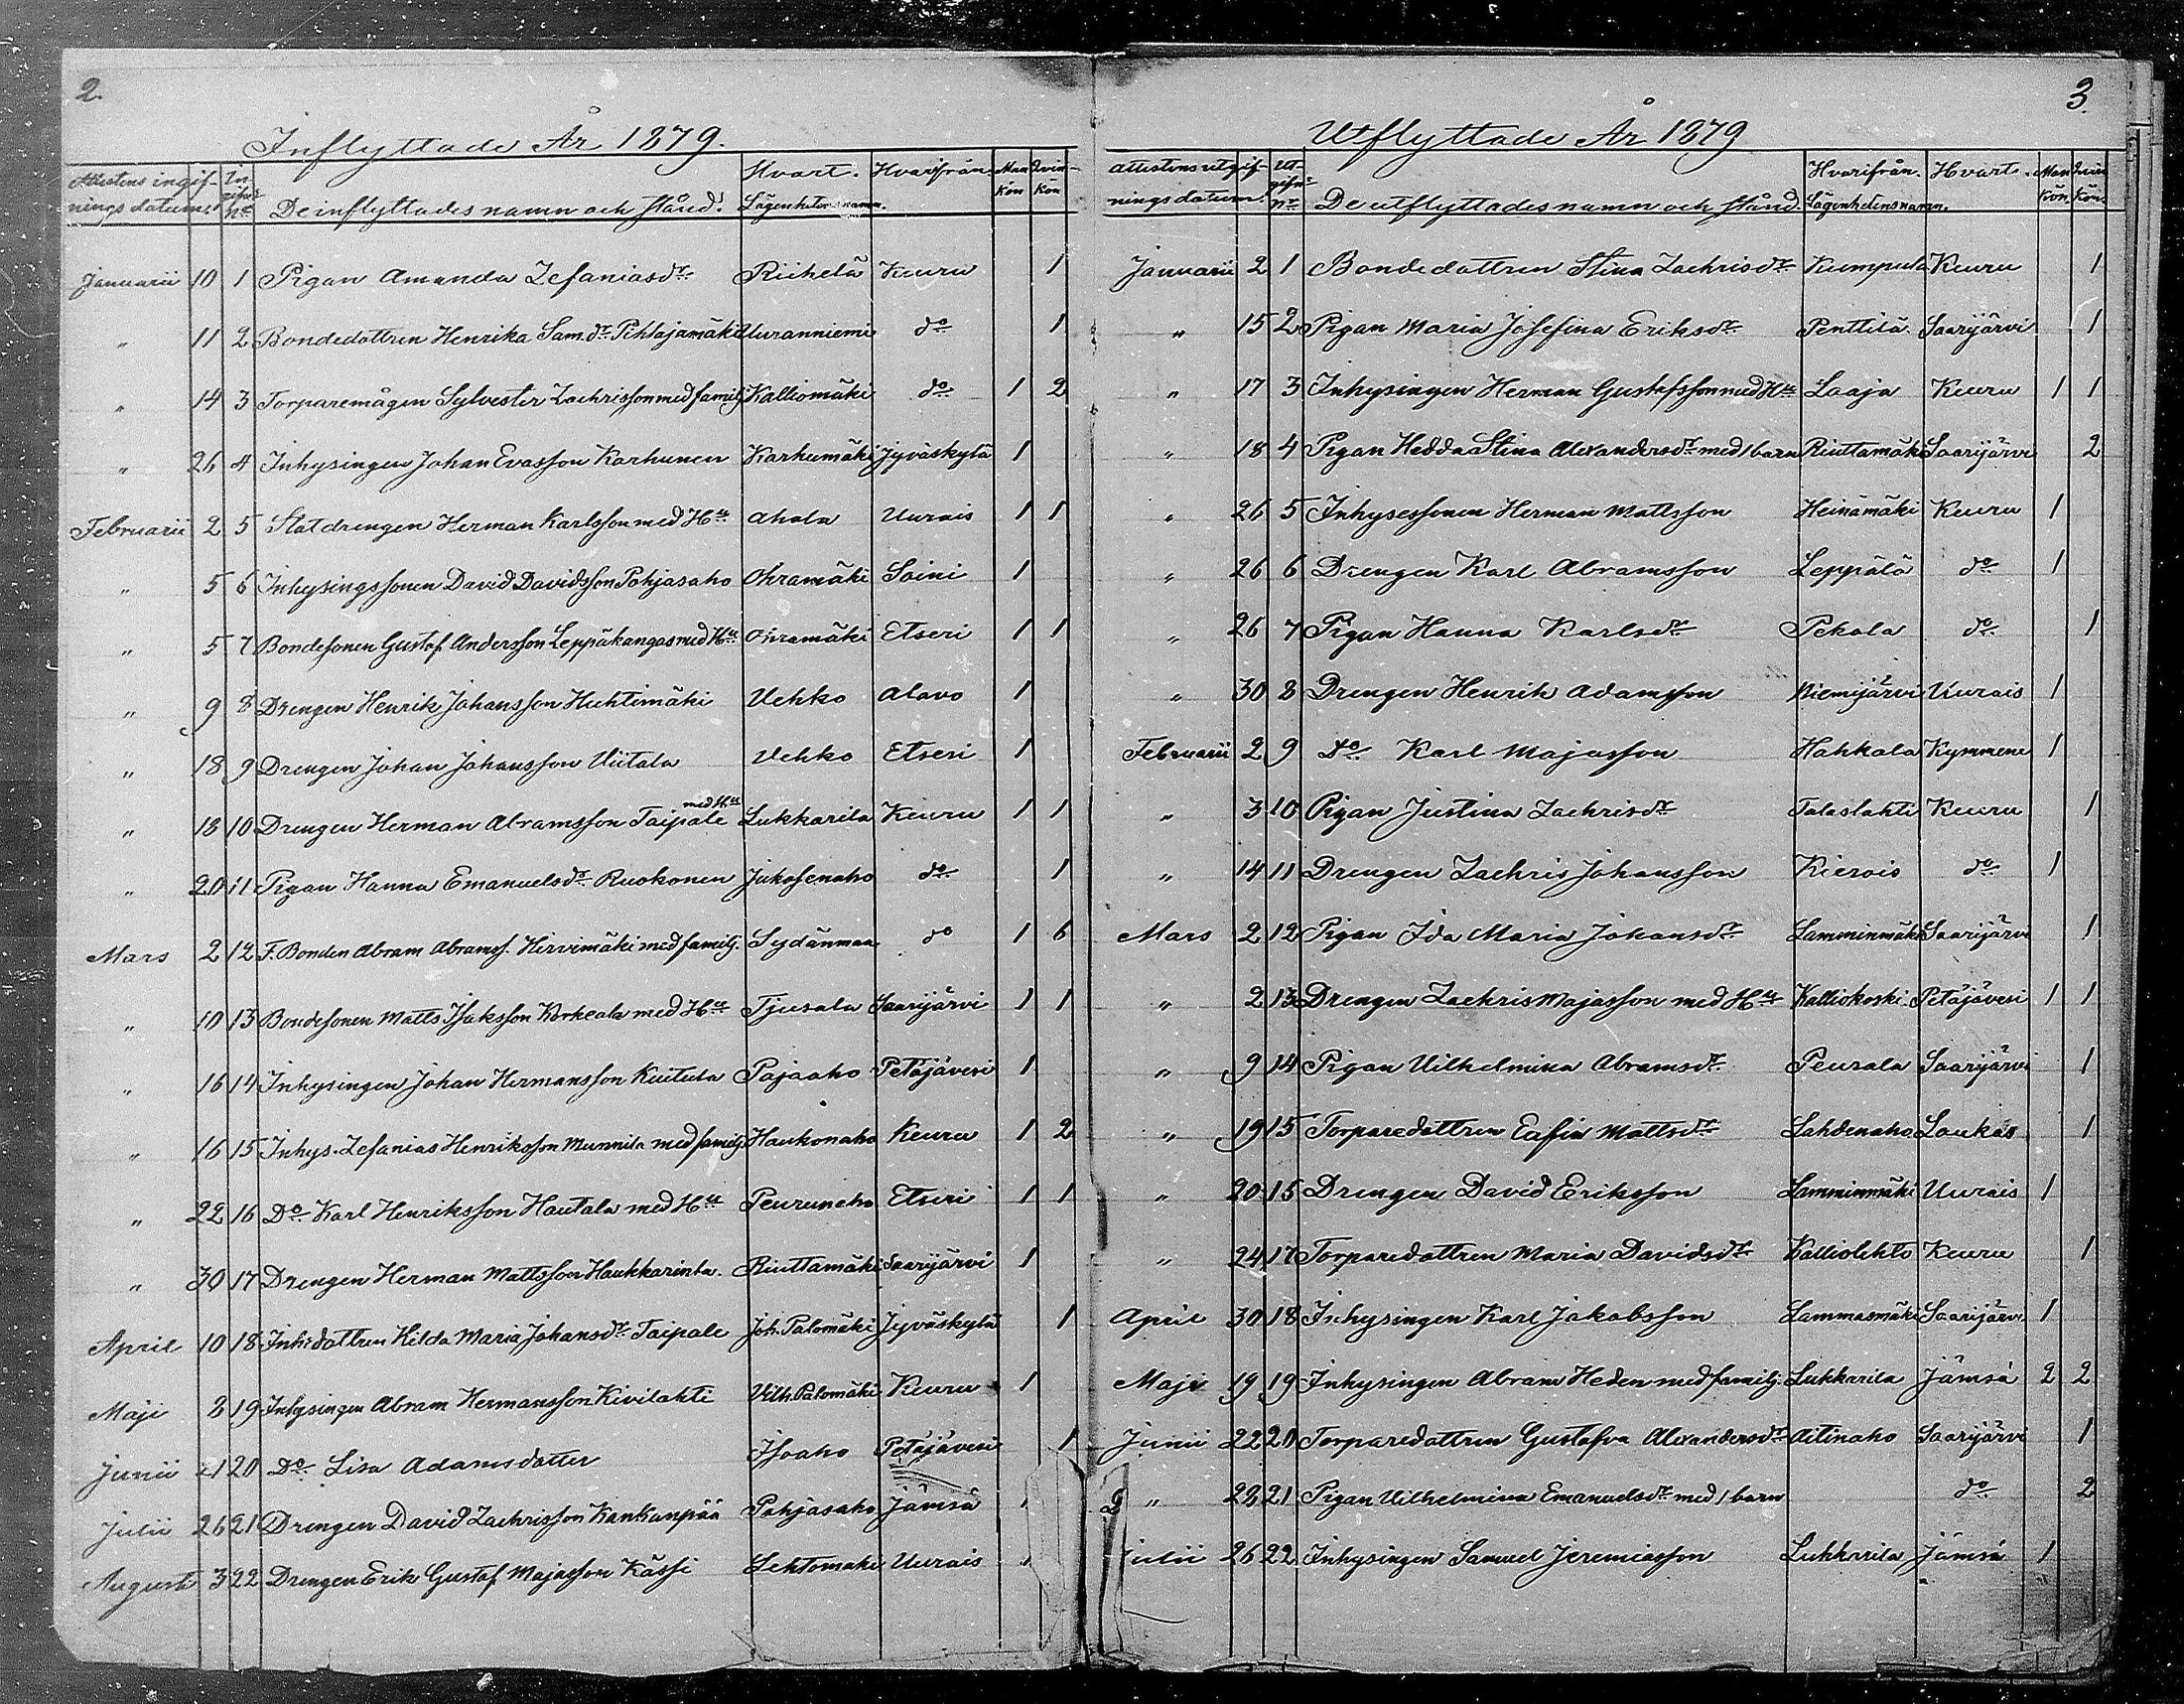 2.
Inflyttade År 1879.
Attestens ingifningsdatum. In gifn: No De inflyttades namn och stånd. Hvart. Hvarifrån. Lägenhetens namn. Mankön Qvinkön
Januarii 10 1 Pigan Amanda Zefaniasdr Riihelä Keuru 1
" 11 2 Bondedottren Henrika Sam.dr Pihlajamäki Uuranniemi do 1
" 14 3 Torparemågen Sylvester Zachrisson med familj Kalliomäki do 1 2
" 26 4 Inhysingen Johan Evasson Karhunen Karhumäki Jyväskylä 1
Februarii 2 5 Statdrengen Herman Karlsson med Hu Ahola Uurais 1 1
" 5 6 Inhysingssonen David Davidsson Pohjasaho Ohramäki Soini 1
" 5 7 Bondesonen Gustaf Andersson Leppäkangas med Hu Ohramäki Etseri 1 1
" 9 8 Drengen Henrik Johansson Huhtimäki Vehko Alavo 1
" 18 9 Drengen Johan Johansson Viitala Vehko Etseri 1
" 18 10 Drengen Herman Abramsson Taipale med Hu Lukkarila Keuru 1 1
" 20 11 Pigan Hanna Emanuelsdr Ruokonen Jukosenaho do 1
Mars 2 12 F. Bonden Abram Abramss. Hirvimäki med familj. Sydänmaa do 1 6
" 10 13 Bondesonen Matts Isaksson Korkeala med Hu Tjusala Saarijärvi 1 1
" 16 14 Inhysingen Johan Hermansson Kuitula Pajaaho Petäjävesi 1
" 16 15 Inhys. Zefanias Henriksson Munnila med familj. Haukonaho Keuru 1 2
" 22 16 Do Karl Henriksson Hautala med Hu Peurunaho Etseri 1 1
" 30 17 Drengen Herman Mattsson Haukkarinta. Riuttamäki Saarijärvi 1
April 10 18 Inh:dottren Hilda Maria Johansdr Taipale Joh. Palomäki Jyväskylä 1
Maji 8 19 Inhysingen Abram Hermansson Kivilahti Vilh. Palomäki Keuru 1
Junii 21 20 Do Lisa Adamsdotter Isoaho Petäjävesi 1
Julii 26 21 Drengen David Zachrisson Kankanpää Pohjasaho Jämsä
Augusti 3 22 Drengen Erik Gustaf Majasson Kässi Lehtomäki Uurais
3.
Utflyttade År 1879
Attestens utgifningsdatum. Ut gifn: No De utflyttades namn och stånd. Hvarifrån. Hvart. Lägenhetens namn. Mankön Qvinkön.
Januarii 2 1 Bondedottren Stina Zachrisdr Kumpula Keuru 1
" 15 2 Pigan Maria Josefina Eriksdr Penttilä Saarijärvi 1
" 17 3 Inhysingen Herman Gustafsson med Hu Laaja Keuru 1 1
" 18 4 Pigan Hedda Stina Alexandersdr med 1 barn Riuttamäki Saarijärvi 2
" 26 5 Inhysessonen Herman Mattsson Heinämäki Keuru 1
" 26 6 Drengen Karl Abramsson Leppälä do 1
" 26 7 Pigan Hanna Karlsdr Pekola do 1
" 30 8 Drengen Henrik Adamsson Niemijärvi Uurais 1
Februarii 2 9 Do Karl Majasson Hahkala Kymmene 1
" 3 10 Pigan Justina Zachrisdr Talaslahti Keuru 1
" 14 11 Drengen Zachris Johansson Kiervis do 1
Mars 2 12 Pigan Ida Maria Johansdr Lamminmäki Saarijärvi 1
" 2 13 Drengen Zachris Majasson med Hu Kalliokoski Petäjävesi 1 1
" 9 14 Pigan Vilhelmina Abramsdr Peurala Saarijärvi 1
" 19 15 Torparedottren Eufia Mattsdr Lahdenaho Laukas 1
" 20 15 Drengen David Eriksson Lamminmäki Uurais 1
" 24 17 Torparedottren Maria Davidsdr Kalliolehto Keuru 1
April 30 18 Inhysingen Karl Jakobsson Lammasmäki Saarijärvi 1
Maji 19 19 Inhysingen Abram Heden med familj. Lukkarila Jämsä 2 2
Junii 22 20 Torparedottren Gustafva Alexandersdr Aitinaho Saarijärvi 1
" 22 21 Pigan Vilhelmina Emanuelsdr med 1 barn do 2
Julii 26 22 Inhysingen Samuel Jeremiasson Lukkarila Jämsä 1